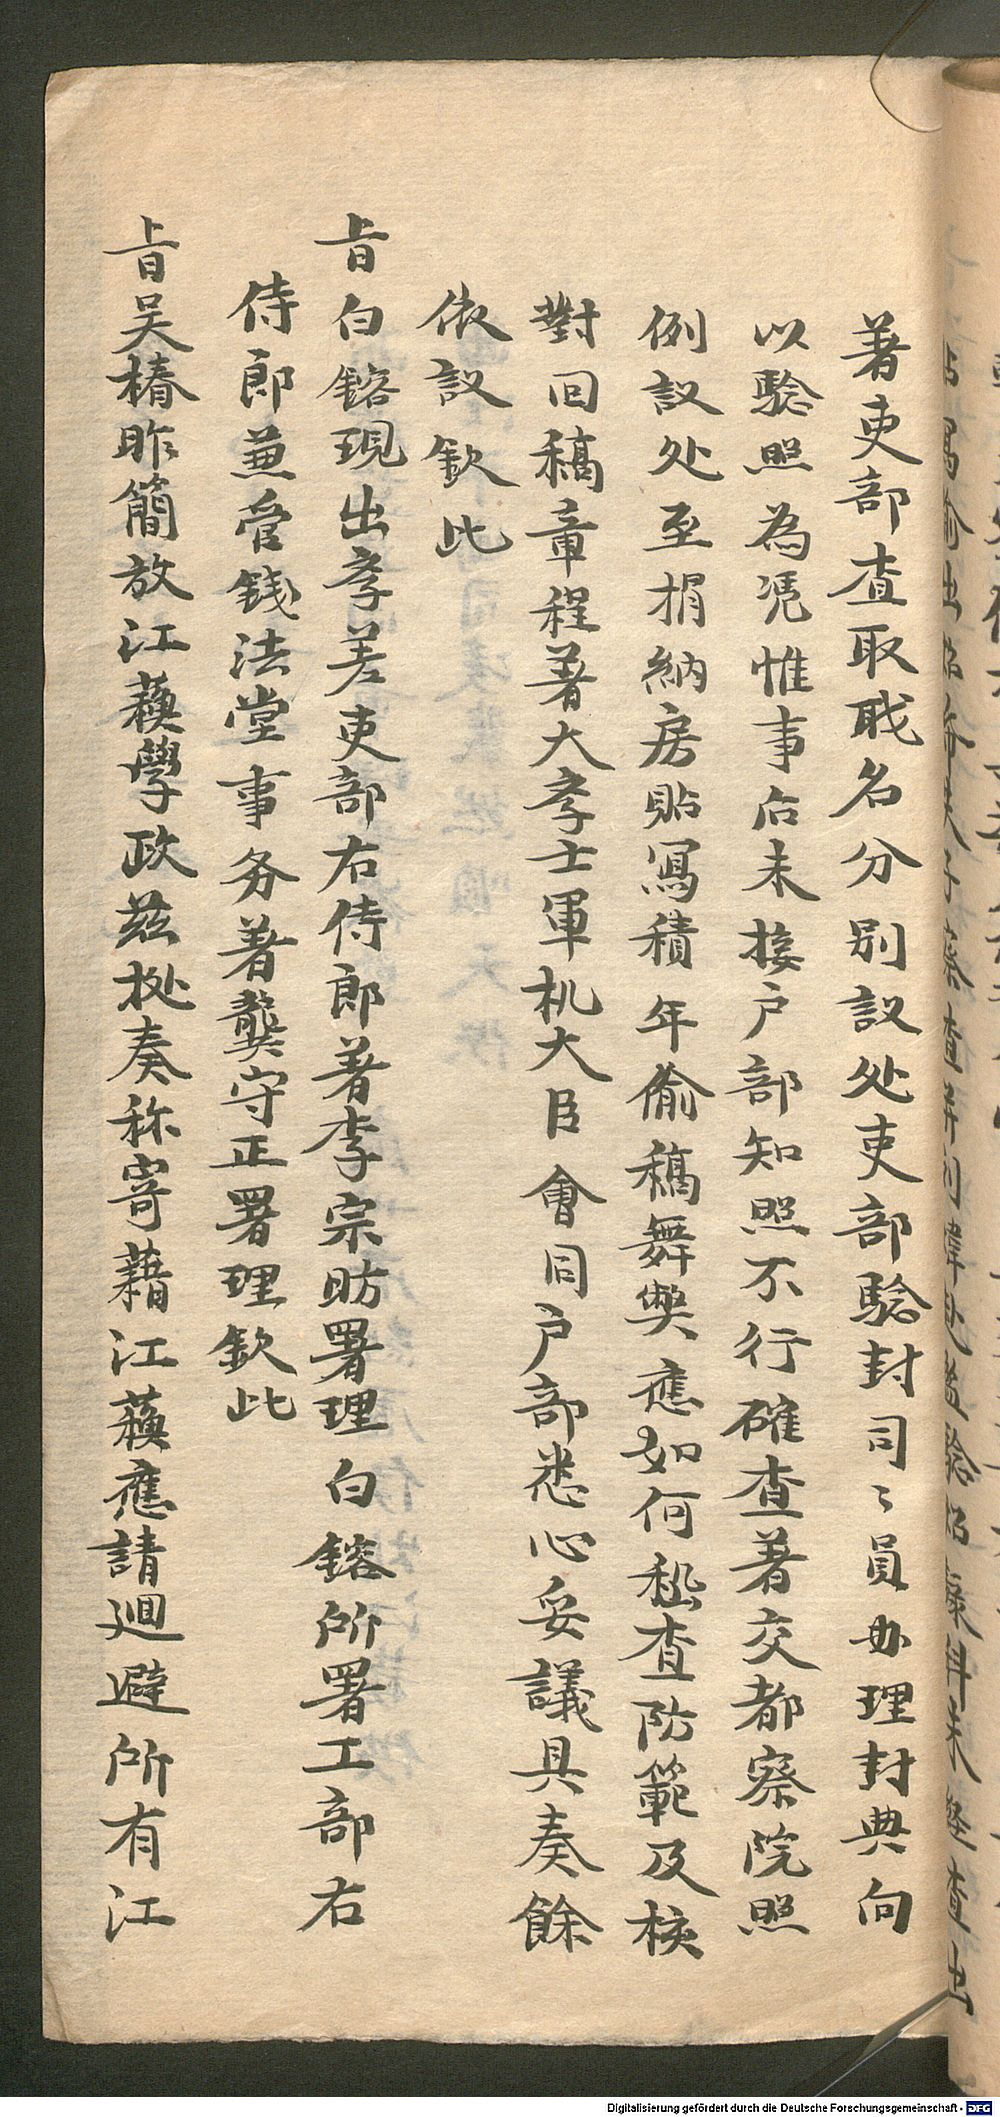 著吏部查取戝名分別議处吏部騐封司〻員办理封典向
以騐照為凴惟事后未接户部知照不行確查著交都察院照
例議处至捐納房貼寫積年偷稿舞弊應如何稽查防範及核
對回稿章程著大孝士軍机大臣會同户部悉心妥議具奏餘
依議欽此
旨白鎔現出孝差吏部右侍郎著李宗昉署理白鎔所署工部右
侍郎兼管錢法堂事务著龔守正署理欽此
旨吴椿昨簡放江蘓學政兹据奏称寄藉江蘓應請迴避所有江
Digitalisierung gefördert durch die Deutsche Forschungsgemeinschaft - DFG